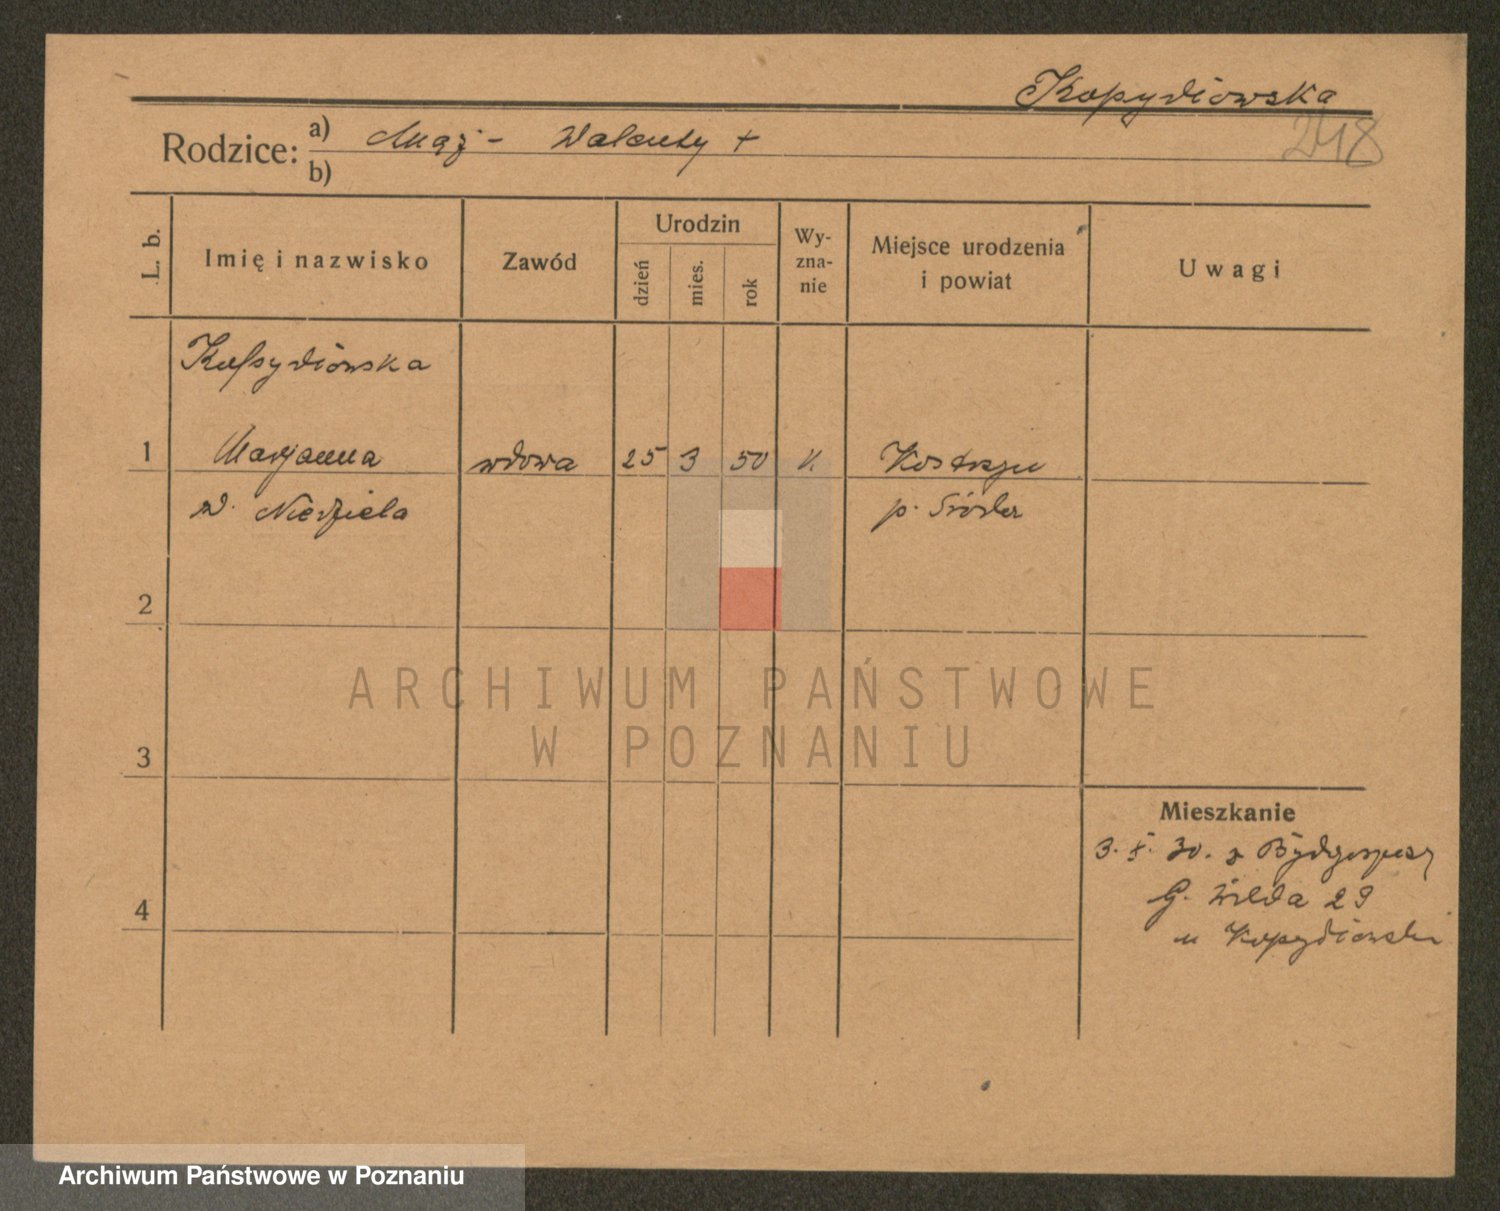 Kopydłowska
248
Rodzice: a) Mąż - Walenty +
b)
L. b.
Imię i nazwisko
Zawód
Urodzin
dzień
mies.
rok
Wy-
zna-
nie
Miejsce urodzenia
i powiat
Uwagi
Kopydłowska
1 Marjanna wdowa 25 3 50 k. Kostrzyn
z d. Niedziela p. Środa
2
ARCHIWUM PAŃSTWOWE
W POZNANIU
3
Mieszkanie
3. X. 30. z Bydgoszczy
G. Wilda 29
4
u Kopydłowski
Archiwum Państwowe w Poznaniu